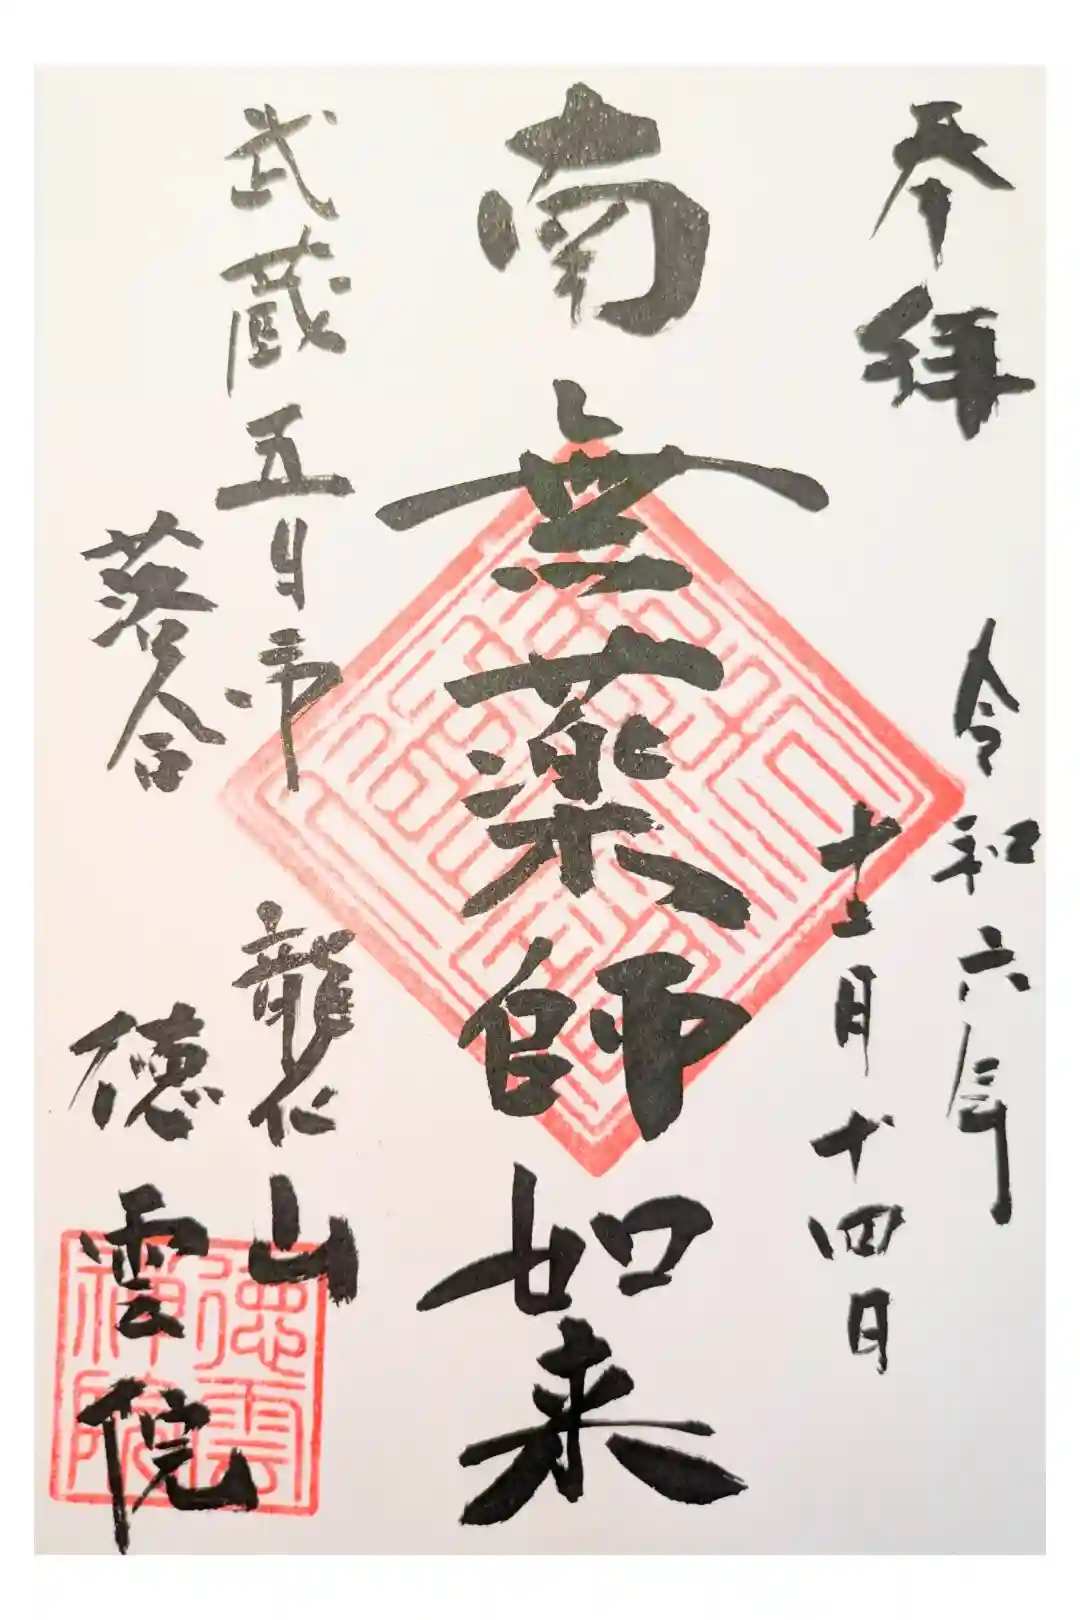 奉拝
令和六年
十二月十四日
南無薬師如来
武蔵五日市
落合
龍仁山
徳雲院
徳雲禅院